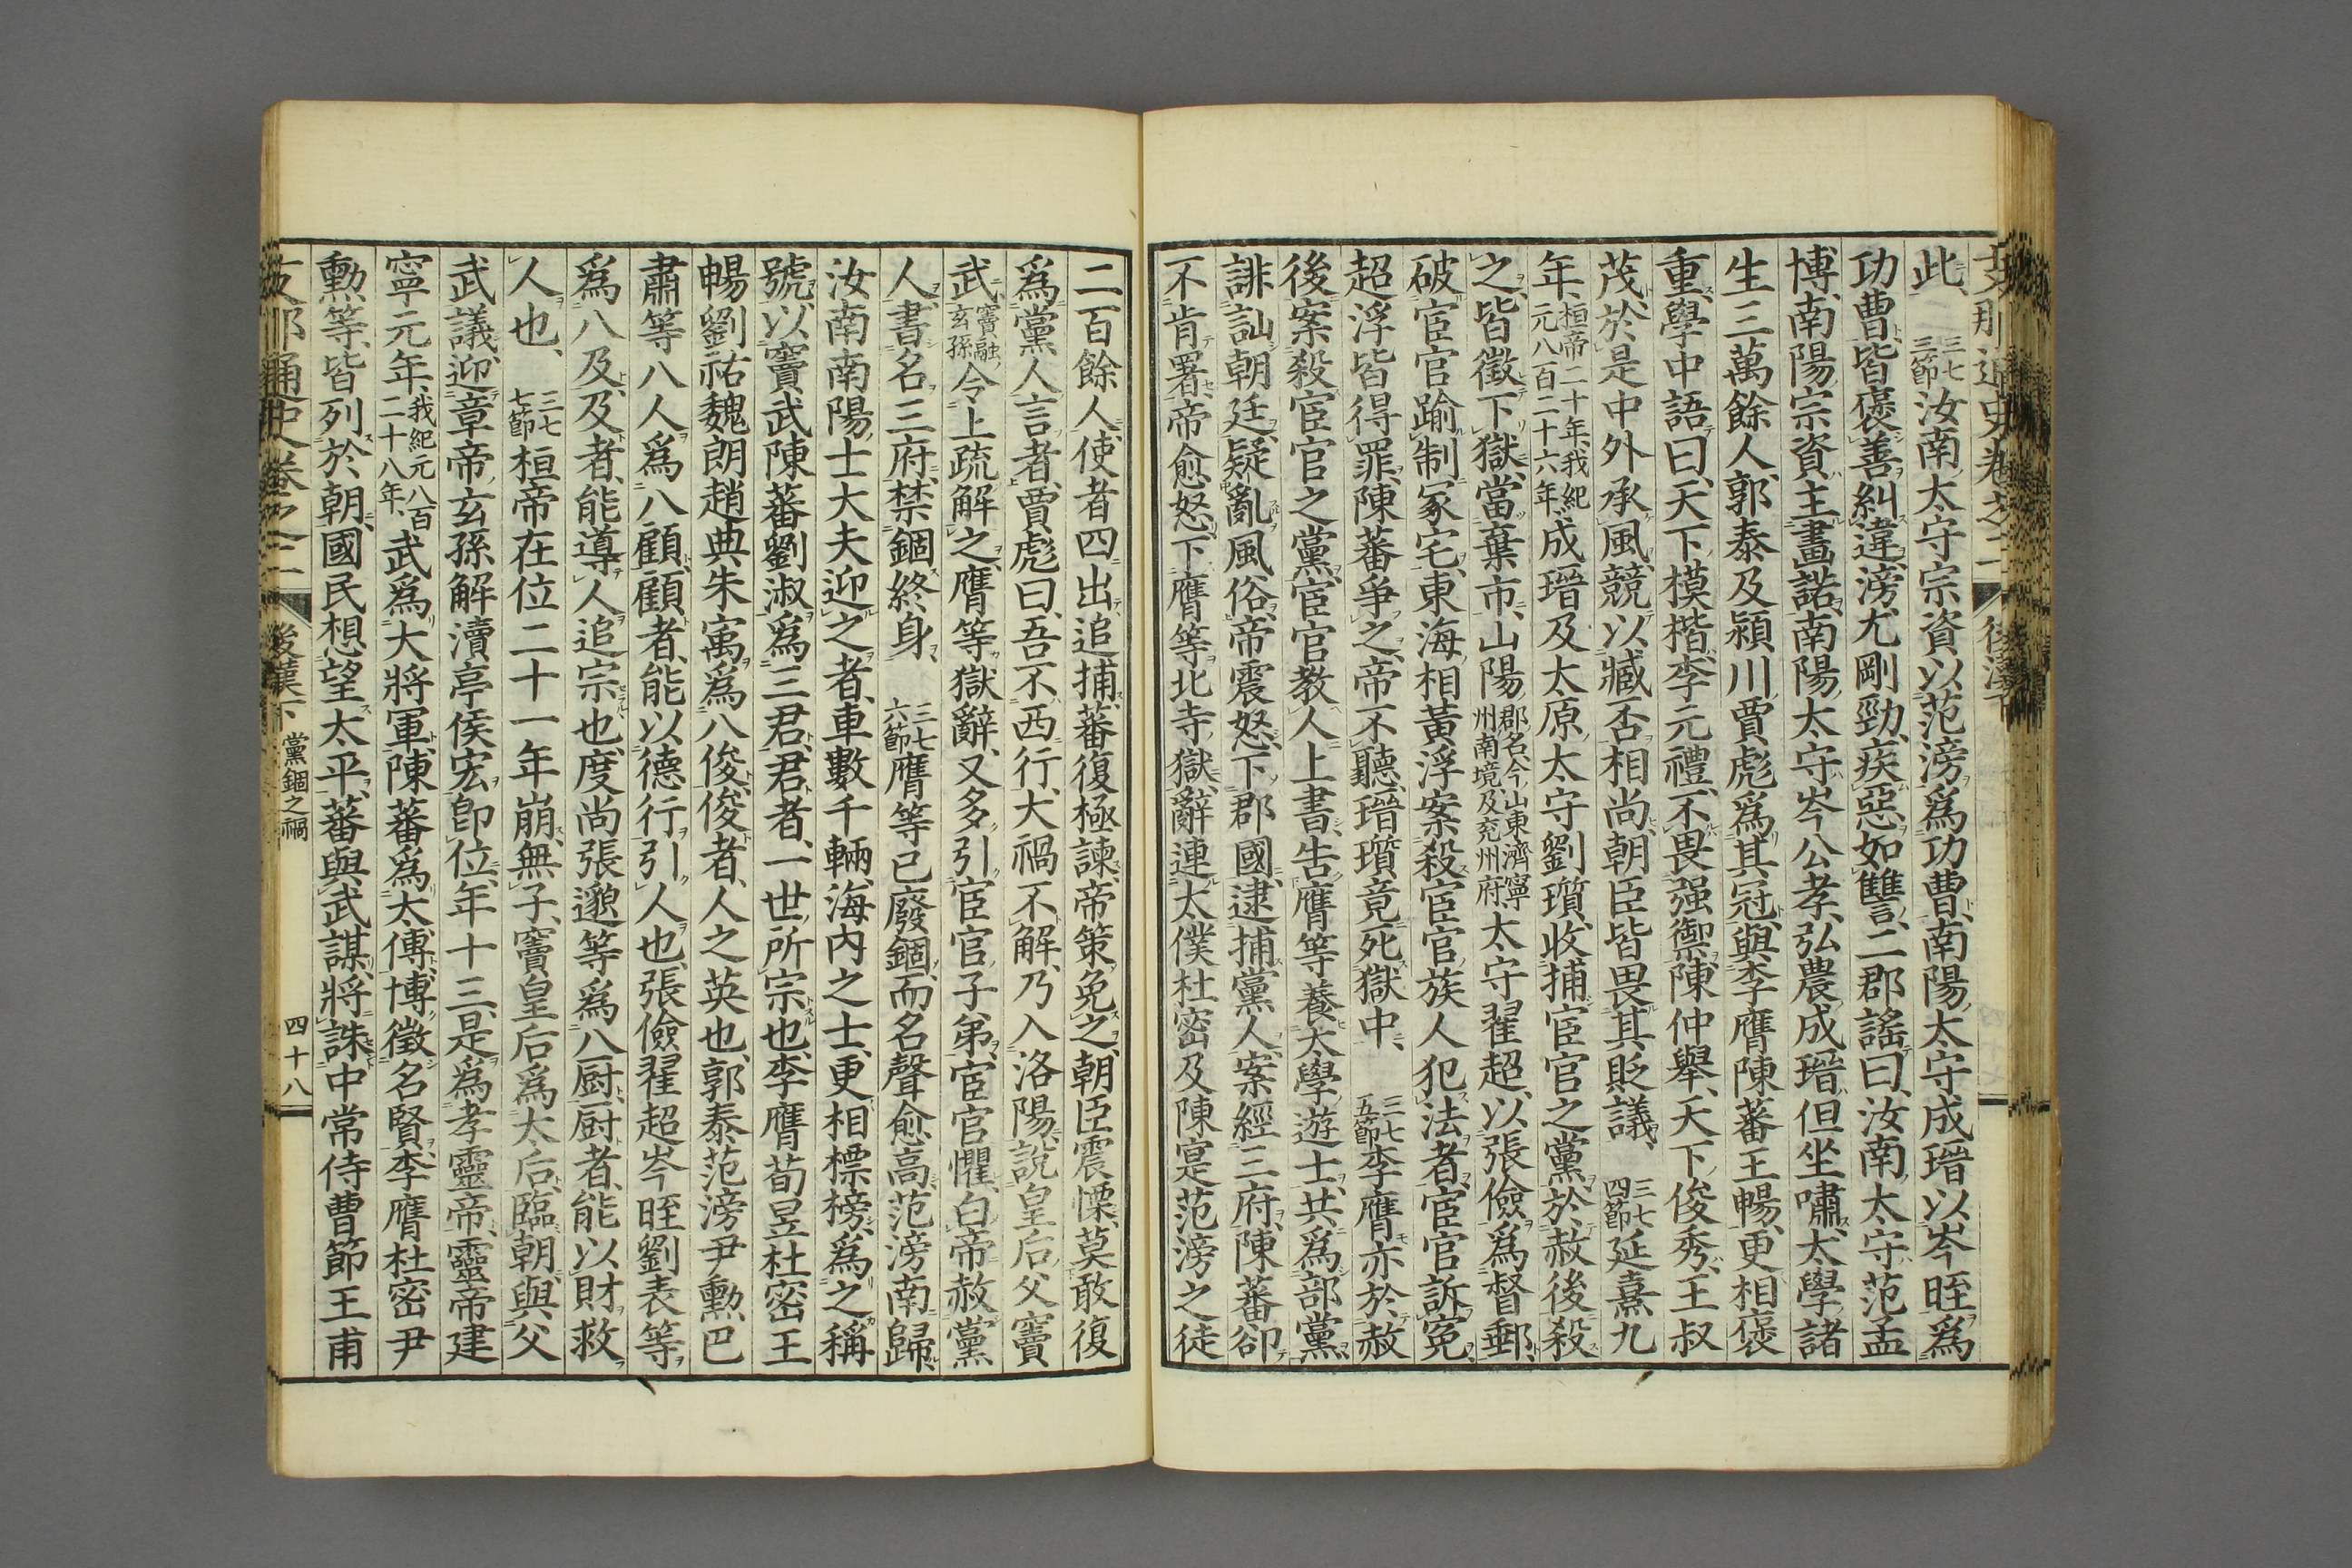 支那通史卷之二 後漢下
此、三七三節汝南太守宗資、以范滂爲功曹、南陽太守成瑨、以岑晊爲
功曹、皆褒善糾違、滂尤剛勁、疾惡如讐、二郡謠曰、汝南太守范孟
博、南陽宗資主畫諾、南陽太守岑公孝、弘農成瑨但坐嘯、太學諸
生三萬餘人、郭泰及潁川賈彪爲其冠、與李膺陳蕃王暢、更相褒
重、學中語曰、天下模楷李元禮、不畏强禦陳仲舉、天下俊秀王叔
茂、於是中外承風、競以臧否相尚、朝臣皆畏其貶議、三七四節延熹九
年、桓帝二十年、我紀元八百二十六年、成瑨及太原太守劉瓆、收捕宦官之黨、於赦後殺
之、皆徵下獄、當棄市、山陽郡名、今山東濟寧州南境、及兗州府太守翟超、以張儉爲督郵、
破宦官踰制冢宅、東海相黃浮、案殺宦官族人犯法者、宦官訴冤、
超浮皆得罪、陳蕃爭之、帝不聽、瑨瓆竟死獄中、三七五節李膺亦於赦
後案殺宦官之黨、宦官教人上書、告膺等養太學遊士、共爲部黨、
誹訕朝廷、疑亂風俗、帝震怒、下郡國、逮捕黨人、案經三府、陳蕃卻
不肯署、帝愈怒、下膺等北寺獄、辭連太僕杜密及陳寔范滂之徒
二百餘人、使者四出追捕、蕃復極諫、帝策免之、朝臣震慄、莫敢復
爲黨人言者、賈彪曰、吾不西行、大禍不解、乃入洛陽、說皇后父竇
武、竇融玄孫、令上疏解之、膺等獄辭、又多引宦官子弟、宦官懼、白帝赦黨
人、書名三府、禁錮終身、三七六節膺等已廢錮、而名聲愈高、范滂南歸、
汝南南陽士大夫迎之者、車數千輛、海内之士、更相標榜、爲之稱
號、以竇武陳蕃劉淑爲三君、君者、一世所宗也、李膺荀昱杜密王
暢劉祐魏朗趙典朱㝢爲八俊、俊者、人之英也、郭泰范滂尹勳巴
肅等八人爲八顧、顧者、能以德行引人也、張儉翟超岑晊劉表等
爲八及、及者、能導人追宗也、度尚張邈等爲八厨、厨者、能以財救
人也、三七七節桓帝在位二十一年崩、無子、竇皇后爲太后、臨朝、與父
武議、迎章帝玄孫解瀆亭侯宏卽位、年十三、是爲孝靈帝、靈帝建
寧元年、我紀元八百二十八年、武爲大將軍、陳蕃爲太傅、博徵名賢、李膺杜密尹
勳等、皆列於朝、國民想望太平、蕃與武謀、將誅中常侍曹節王甫
支那通史卷之二 後漢下 黨錮之禍 四十八